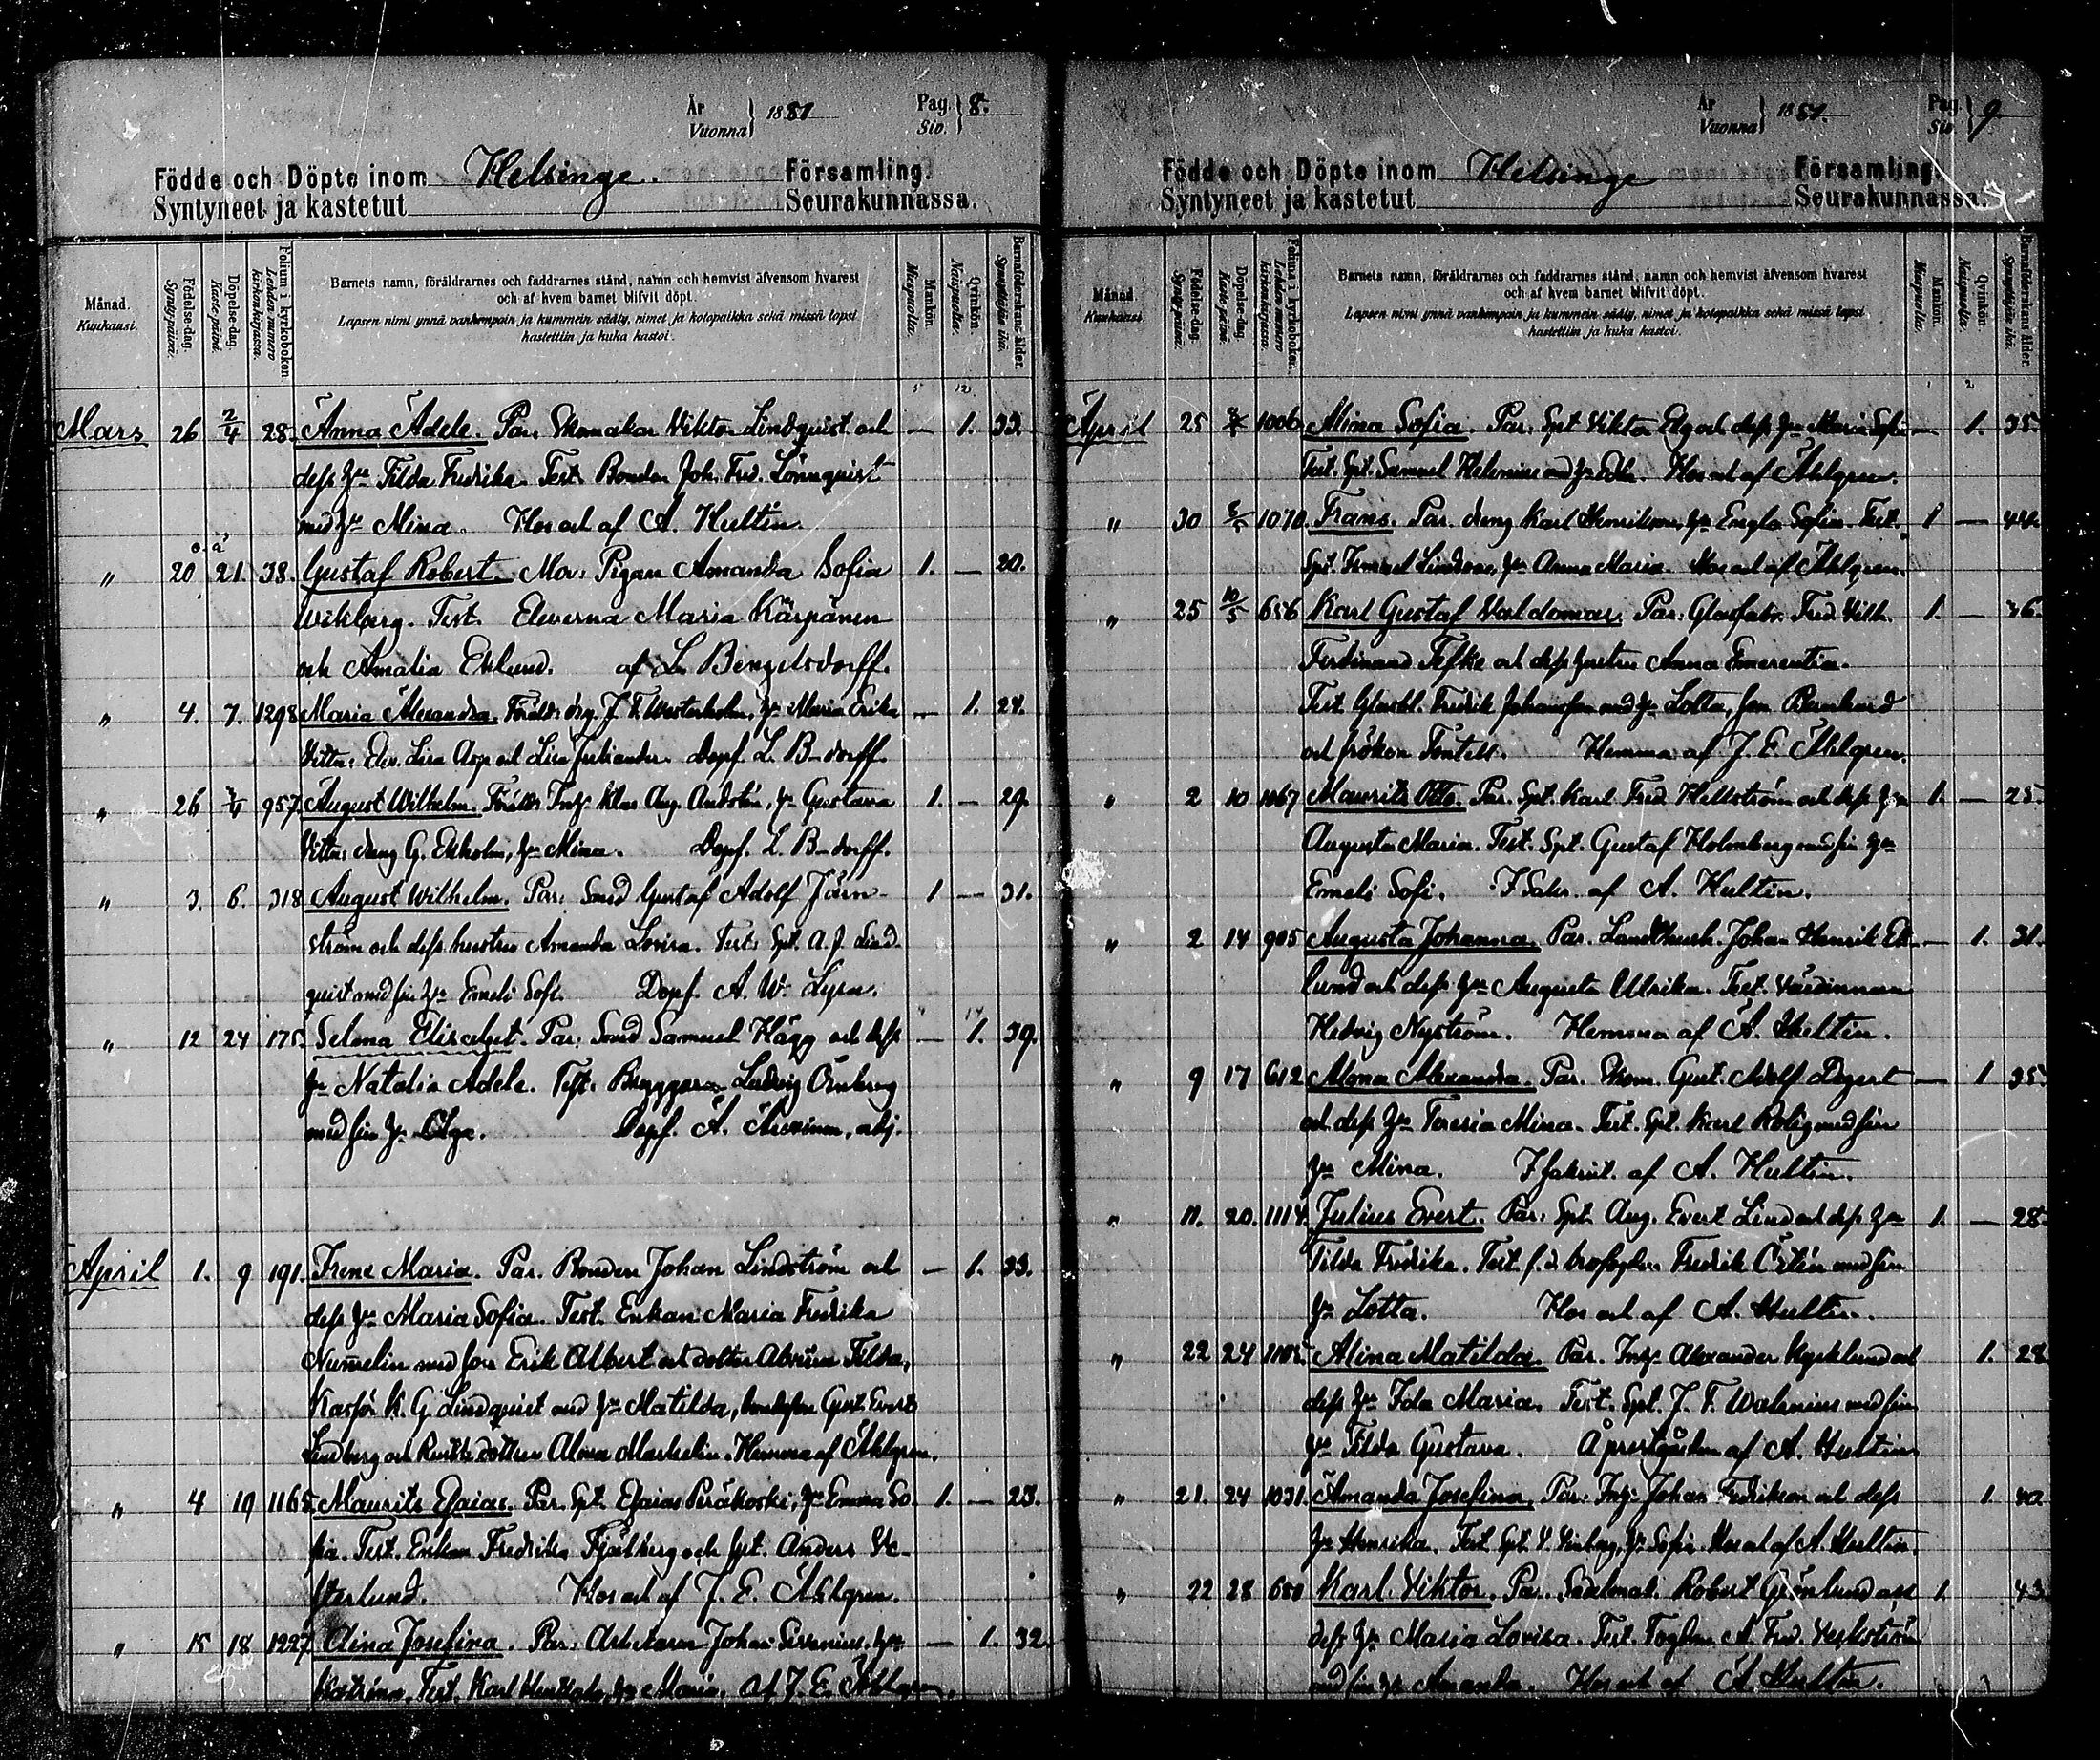 År
Vuonna } 1881
Pag.
Siv. } 8.
Födde och Döpte inom Helsinge. Församling.
Syntyneet ja kastetut Seurakunnassa.
Månad.
Kuukausi.
Födelse-dag.
Syntypäivä.
Döpelse-dag.
Kaste päivä.
Folium i kyrkoboken.
Lehden numero kirkonkirjassa.
Barnets namn, föräldrarnes och faddrarnes stånd, namn och hemvist äfvensom hvarest
och af hvem barnet blifvit döpt.
Lapsen nimi ynnä vanhempain ja kummein sääty, nimet ja kotopaikka sekä missä lapsi
kastettiin ja kuka kastoi.
Mankön.
Miespuolia.
Qvinkön.
Naispuolia.
Barnaföderskans ålder.
Synnyttäjän ikä.
Mars 26 2/4 28. Anna Adele. Par. Skomakar Viktor Lindquist och — 1. 33.
dess hu Tilda Fredrika. Test. Bonden Joh. Fred. Lönnquist
med hu Mina. Hos och af A. Hultin.
" 20 21. 38. Gustaf Robert. Mor: Pigan Amanda Sofia 1. — 20.
Wikberg. Test. Eleverna Maria Kärpänen
och Amalia Eklund. af L. Bengelsdorff.
" 4. 7. 1298 Maria Alexandra. Föräld: drg. J. F. Westerholm, hu Maria Erika — 1. 24.
Vittn: Elev. Lisa Asp och Lisa Dopf. L. B-dorff.
" 26 957. August Wilhelm. Föräld: Inhy. Klas Aug. hu Gustava 1. — 29.
Vittn: dreng G. Ekholm, hu Mina. Dopf. L. B-dorff.
" 3. 6. 318 August Wilhelm. Par: Smed Gustaf Adolf Järn- 1 — 31.
ström och dess hustru Amanda Lovisa. Test: Spt. A. J. Lind-
quist med sin hu Emeli Sofi. Dopf. A. W. Lyra.
" 12 24 175. Selma Elisabet. Par: Smed Samuel Hägg och dess — 1. 39.
hu Natalia Adele. Test. Bryggare Ludvig Örnberg
med sin hu Olga. Dopf. A. adj.
April 1. 9 191. Irene Maria. Par. Bonden Johan Lindström och — 1. 33.
dess hu Maria Sofia. Test. Enkan Maria Fredrika
Numelin med son Erik Albert och dotter Tilda,
K. G. Lindquist med hu Matilda, Gust. Evert
Lindberg och dottren Alma Hemma af Åhlgren.
" 4 19 1165. Maurits Esaias. Par. Spt. Esaias Peräkoski, hu Emma So- 1. — 23.
fia. Test. Enkan Fredrika och Spt. Anders Ve-
sterlund. Hos och af J. E. Åhlgren.
" 15 18 1227 Alina Josefina. Par. Arbetaren Johan hu — 1. 32.
Test. Karl hu Maria. Af J. E. Åhlgren.
År
Vuonna } 1881.
Pag.
Siv. } 9.
Födde och Döpte inom Helsinge Församling.
Syntyneet ja kastetut Seurakunnassa.
Månad.
Kuukausi.
Födelse-dag.
Syntypäivä.
Döpelse-dag.
Kaste päivä.
Folium i kyrkoboken.
Lehden numero kirkonkirjassa.
Barnets namn, föräldrarnes och faddrarnes stånd, namn och hemvist äfvensom hvarest
och af hvem barnet blifvit döpt.
Lapsen nimi ynnä vanhempain ja kummein sääty, nimet ja kotopaikka sekä missä lapsi
kastettiin ja kuka kastoi.
Mankön.
Miespuolia.
Qvinkön.
Naispuolia.
Barnaföderskans ålder.
Synnyttäjän ikä.
April 25 1006 Mina Sofia. Par. Spt. Viktor Elg och dess hu Maria Sofia — 1. 35.
Test. Spt. Samuel Helenius med hu Edla. Hos och af Åhlgren.
" 30 1070. Frans. Par. dreng Karl Henriksson, hu Engla Sofia. Test. 1 — 44.
Spt. hu Anna Maria. Hos och af Åhlgren.
" 25 10/5 656 Karl Gustaf Valdemar. Par. Glasfabr. Fred. Vilh. 1. — 36.
Ferdinand Tefke och dess hustru Anna Emerentia.
Test. Fredrik Johansson med hu Lotta, Reinhard
och fröken Hemma af J. E. Åhlgren.
" 2 10 1067 Maurits Otto. Par. Spt. Karl Fred. Hellström och dess hu 1. — 25.
Augusta Maria. Test. Spt. Gustaf Holmberg med sin hu
Emeli Sofi. I Sakr. af A. Hultin.
" 2 14 905 Augusta Johanna. Par. Landtbruk. Johan Henrik Ek- — 1. 31.
lund och dess hu Augusta Ulrika. Test. Värdinnan
Hedvig Nyström. Hemma af A. Hultin.
" 9 17 612 Mona Alexandra. Par. Skom. Gust. Adolf Degert — 1 35.
och dess hu Teresia Mina. Test. Spt. Karl Rolig med sin
hu Mina. I sakrist. af A. Hultin.
" 11. 20. 1114. Julius Evert. Par. Spt. Aug. Evert Lind och dess hu 1. — 28.
Tilda Fredrika. Test. f. d. Fredrik Östén med sin
hu Lotta. Hos och af A. Hultin.
" 22 24 Alina Matilda. Par. Inhy. Alexander Kyrklund och 1. 28.
dess hu Ida Maria. Test. Spt. J. F. Walenius med sin
hu Tilda Gustava. Å prestgården af A. Hultin
" 21. 24 1031. Amanda Josefina. Par. Inhy. Johan Fredrikson och dess 1. 40.
hu Henrika. Test. Spt. hu Sofia. Hos och af A. Hultin.
" 22 28 680 Karl Viktor. Par. Robert Grönlund och 1. 43.
dess hu Maria Lovisa. Test. A. Fred. Verkström
med sin hu Amanda. Hos och af A. Hultin.